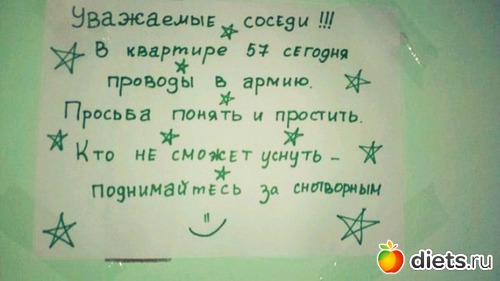 Уважаемые соседи!!!
В квартире 57 сегодня
проводы в армию.
Просьба понять и простить.
Кто не сможет уснуть –
поднимайтесь за снотворным
diets.ru